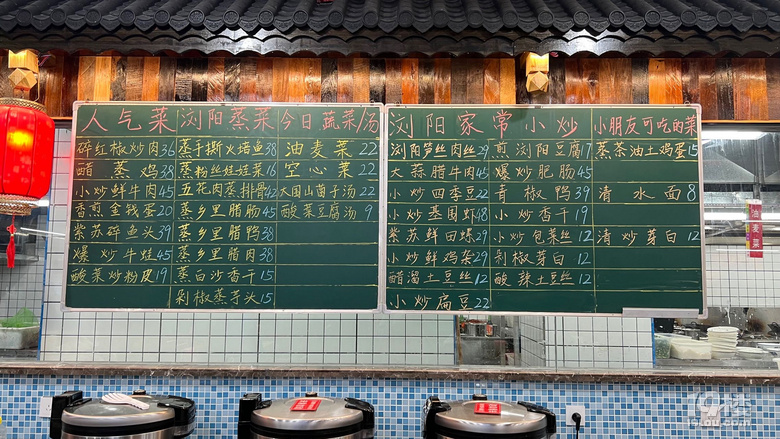 人气菜 浏阳蒸菜 今日蔬菜/汤
碎红椒炒肉36 蒸手撕火焙鱼38 油麦菜22
醋蒸鸡38 蒸粉丝娃娃菜16 空心菜22
小炒鲜牛肉45 五花肉蒸排骨42 大国山菌子汤22
香煎金钱蛋20 蒸乡里腊肠45 酸菜豆腐汤9
紫苏碎鱼头39 蒸乡里腊鸭38
爆炒牛蛙45 蒸乡里腊肉38
酸菜炒粉皮19 蒸白沙香干15
剁椒蒸芋头15
浏阳家常小炒 小朋友可吃的菜
浏阳笋丝肉丝29 煎浏阳豆腐17 蒸茶油土鸡蛋15
大蒜腊牛肉45 爆炒肥肠45
小炒四季豆22 青椒鸭39 清水面8
小炒基围虾48 小炒香干19
紫苏鲜田螺29 小炒包菜丝12 清炒芽白12
小炒鲜鸡杂29 剁椒芽白12
醋溜土豆丝12 酸辣土豆丝12
小炒扁豆22
油麦菜